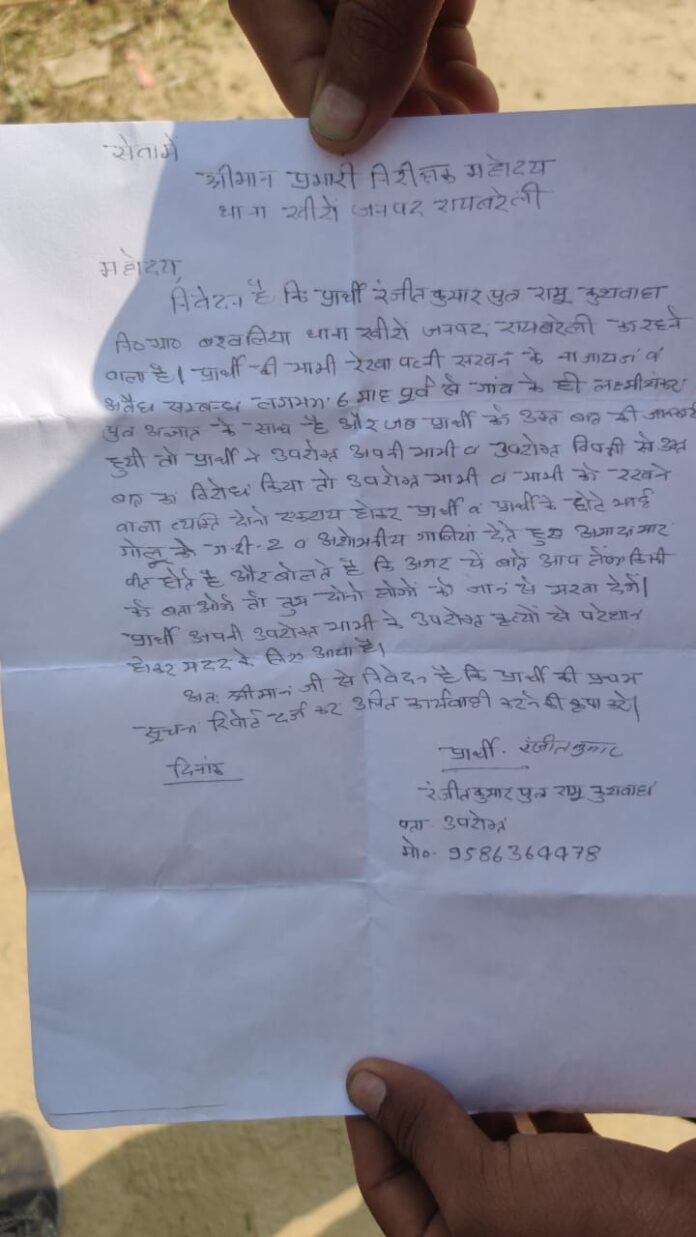 सेवामें
श्रीमान प्रभारी निरीक्षक महोदय
थाना खीरों जनपद रायबरेली
महोदय,
निवेदन है कि प्रार्थी रंजीत कुमार पुत्र रामू कुशवाहा
नि०ग्रा० बरवलिया थाना खीरों जनपद रायबरेली का रहने
वाला है। प्रार्थी की भाभी रेखा पत्नी सरवन के नाजायज व
अवैध सम्बन्ध लगभग 6 माह पूर्व से गांव के ही लक्ष्मीशंकर
पुत्र अज्ञात के साथ है और जब प्रार्थी को उक्त बात की जानकारी
हुयी तो प्रार्थी ने उपरोक्त अपनी भाभी व उपरोक्त विपक्षी से उक्त
बात का विरोध किया तो उपरोक्त भाभी व भाभी को रखने
वाला व्यक्ति दोनो एकराय होकर प्रार्थी व प्रार्थी के छोटे भाई
गोलू को व अशोभनीय गालियां देते हुए आमादा मार
पीट होते है और बोलते है कि अगर ये बाते आप लोग किसी
को बताओगे तो तुम दोनो लोगों को जान से मरवा देगें।
प्रार्थी अपनी उपरोक्त भाभी के उपरोक्त कृत्यों से परेशान
होकर मदद के लिए आया है।
अतः श्रीमान जी से निवेदन है कि प्रार्थी की प्रथम
सूचना रिपोर्ट दर्ज कर उचित कार्यवाही करने की कृपा करे।
दिनांक
प्रार्थी- रंजीत कुमार
रंजीत कुमार पुत्र रामू कुशवाहा
पता- उपरोक्त
मो०- 9586364478